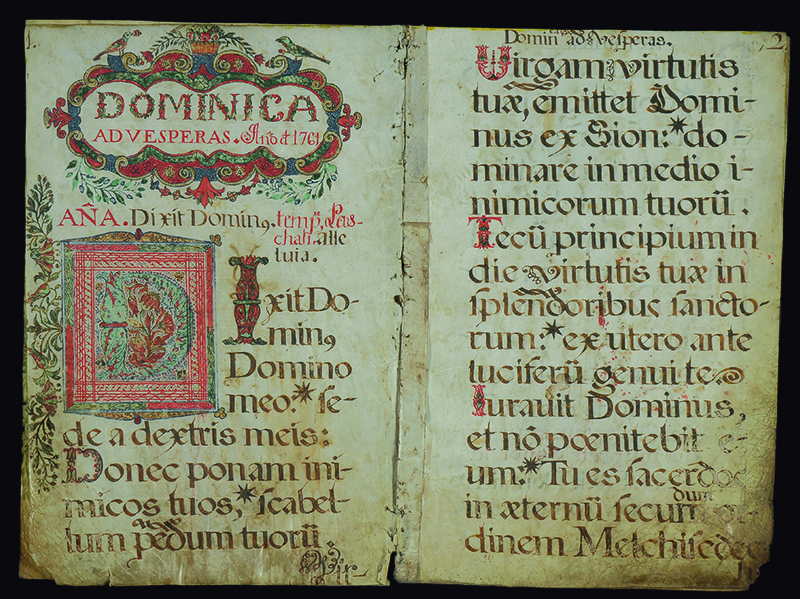 1.
DOMINICA
AD VESPERAS. Año d 1761
AÑA. Dixit Dominꝯ. temp. Pas-
chali. alle
luia.
Dixit Do-
minꝯ
Domino
meo: * se-
de a dextris meis:
Donec ponam ini-
micos tuos, * scabel-
lum pedum tuorū.
Vir-
Domin ad Vesperas.
2
Virgam virtutis
tuæ, emittet Domi-
nus ex Sion: * do-
minare in medio i-
nimicorum tuorū.
Tecū principium in
die virtutis tuæ in
splendoribus sancto-
rum: * ex utero ante
luciferū genui te.
Iuravit Dominus,
et nō pœnitebit e-
um: * Tu es sacerdos
in æternū secundum or-
dinem Melchisedec